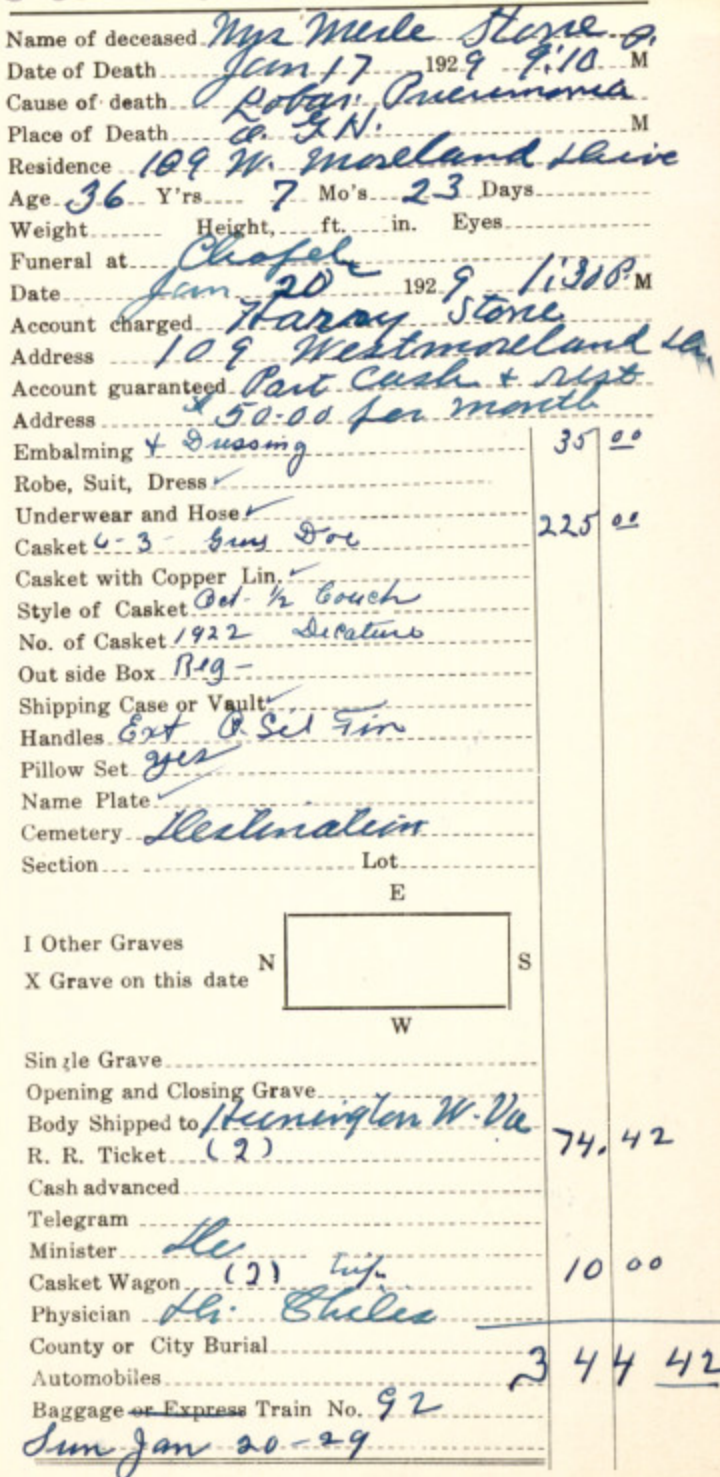 Name of deceased Mrs Merle Stone
Date of Death Jan 17 1929 9:10 P. M
Cause of death Lobar Pneumonia
Place of Death G. N. M
Residence 109 W. Moreland Drive
Age 36 Y'rs 7 Mo's 23 Days
Weight Height, ft. in. Eyes
Funeral at Chapel
Date Jan 20 1929 1:30 P M
Account charged Harry Stone
Address 109 Westmoreland Dr.
Account guaranteed Part Cash + rest
Address $50.00 per month
Embalming + Dressing 35 00
Robe, Suit, Dress ✓
Underwear and Hose ✓
Casket 6-3- Grey Doe 225 00
Casket with Copper Lin. ✓
Style of Casket Oct. ½ Couch
No. of Casket 1922 Decature
Out side Box Reg -
Shipping Case or Vault ✓
Handles Ext Sil Fin
Pillow Set yes
Name Plate ✓
Cemetery Destination
Section Lot
E
I Other Graves
N S
X Grave on this date
W
Single Grave
Opening and Closing Grave
Body Shipped to Hunington W. Va
R. R. Ticket (2) 74.42
Cash advanced
Telegram
Minister
Casket Wagon (2) 10 00
Physician Dr. Chiles
County or City Burial
Automobiles 344 42
Baggage or Express Train No. 92
Sun Jan 20-29